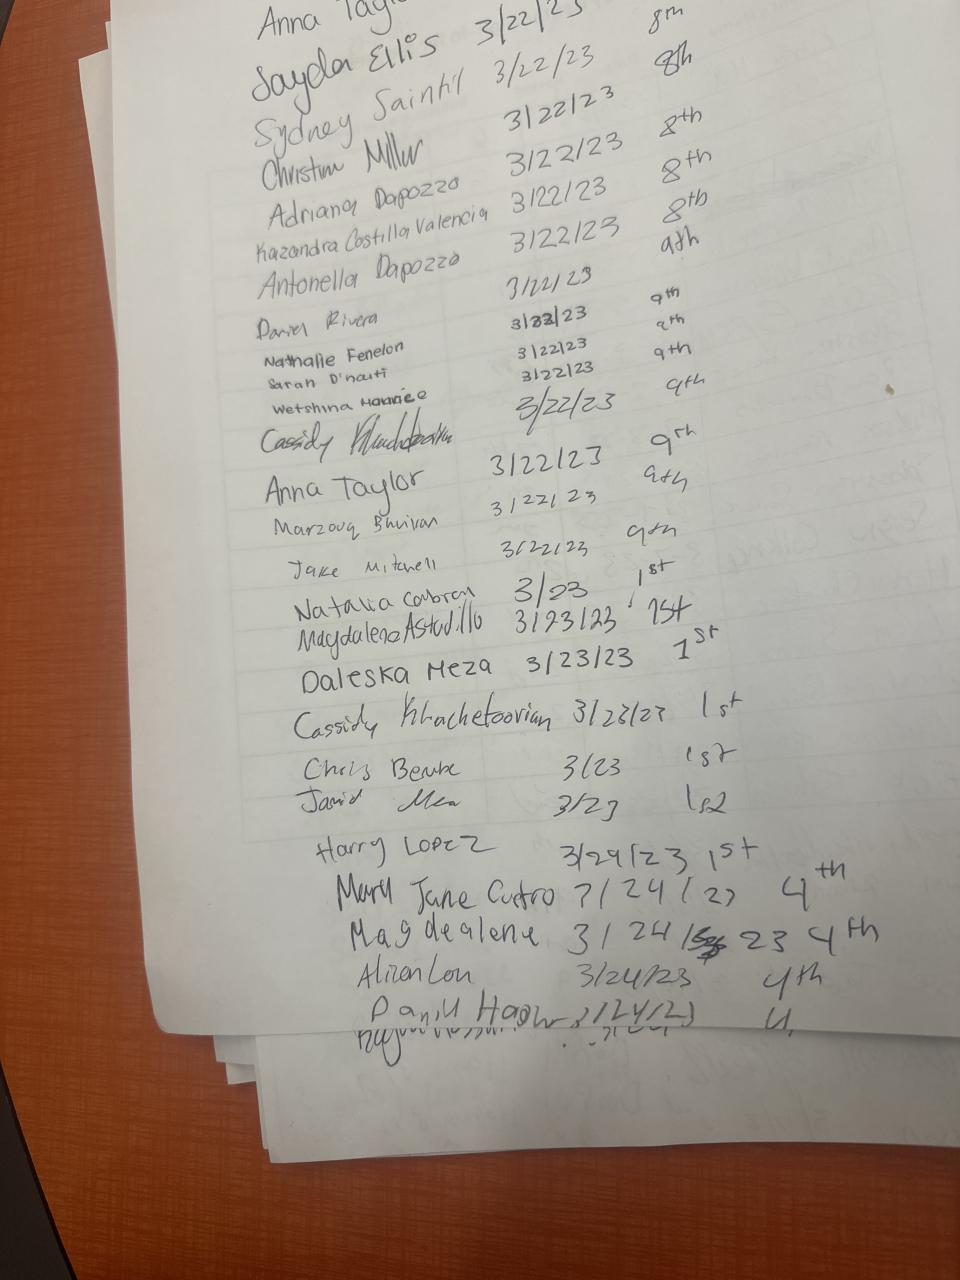 Anna Taylo
Sayda Ellis 3/22/23 8th
Sydney Saintil 3/22/23 8th
Christine Miller 3/22/23
Adriana Dapozzo 3/22/23 8th
Kazandra Costilla Valencia 3/22/23 8th
Antonella Dapozzo 3/22/23 8th
Daniel Rivera 3/22/23 9th
Nathalie Fenelon 3/22/23 9th
Sarah D'haiti 3/22/23 9th
Wetshina Maurice 3/22/23 9th
Cassidy 3/22/23 9th
Anna Taylor 3/22/23 9th
Marzouq 3/22/23 9th
Jake Mitchell 3/22/23 9th
Natalia 3/23 1st
Magdalena Astudillo 3/23/23 1st
Daleska Meza 3/23/23 1st
Cassidy Khachetoorian 3/23/23 1st
Chris 3/23 1st
3/23 1st
Harry Lopez 3/24/23 1st
Mary Jane Castro 3/24/23 4th
Magdealene 3/24/23 4th
3/24/23 4th
3/24/23 4